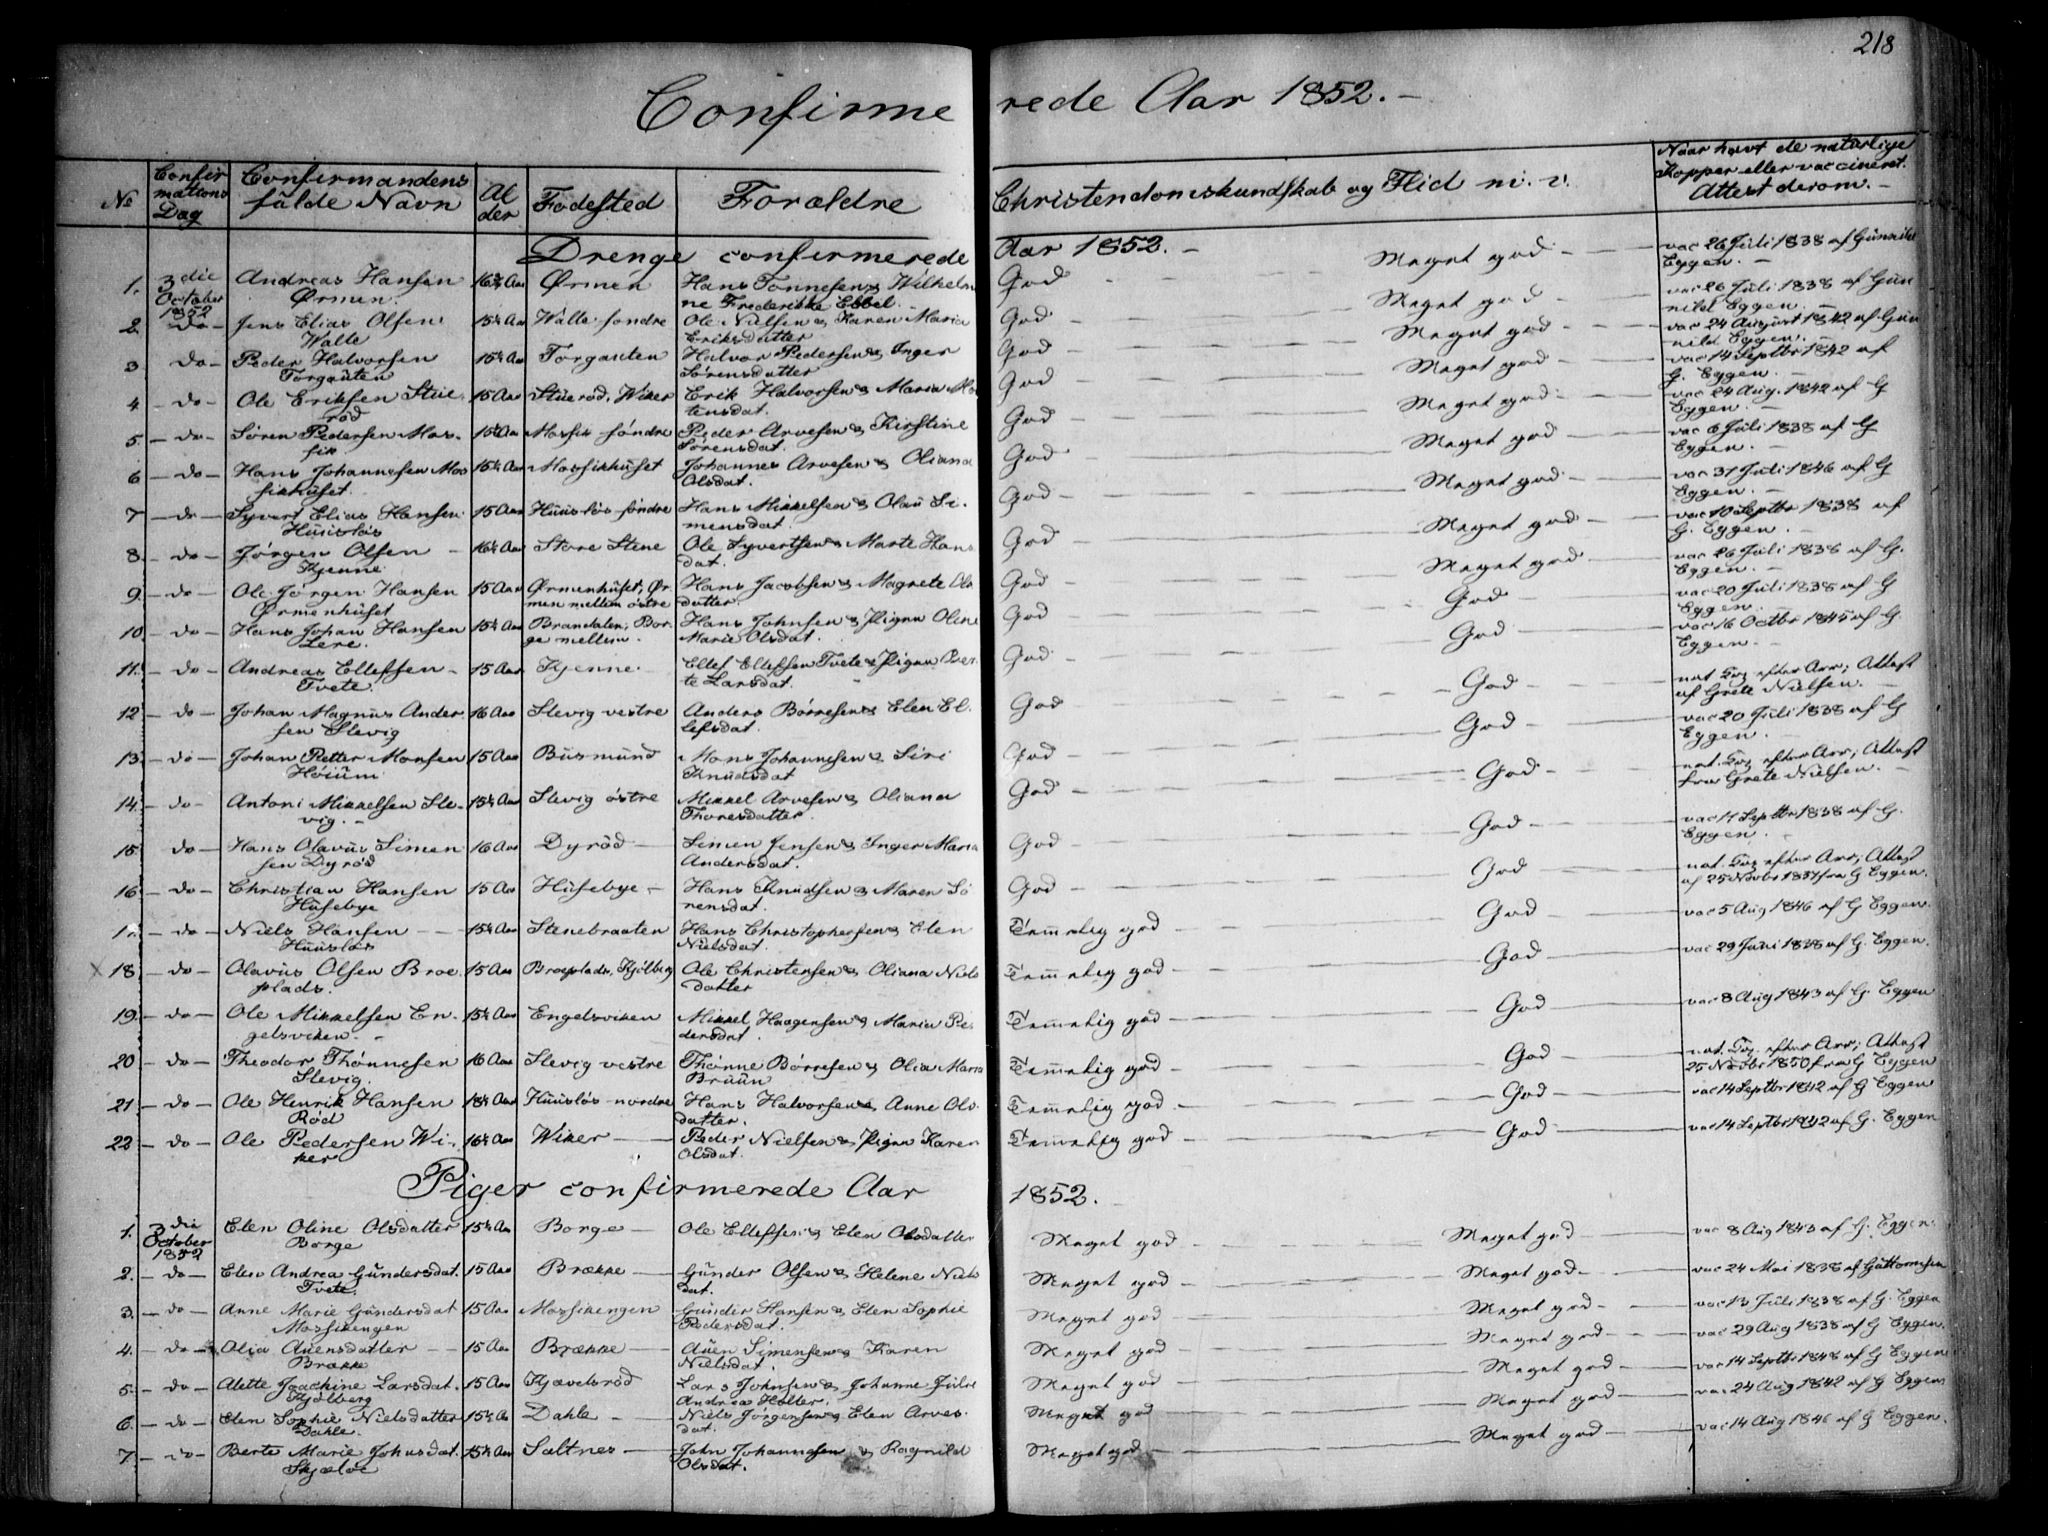 218
Confirmerede Aar 1852.
No
Confirmations Dag
Confirmandens fulde Navn
Alder
Fødested
Forældre
Christendomskundskab og Flid m. v.
Naar havt de naturlige Kopper eller vaccineret. Attest derom.
Drenge confirmerede Aar 1852.
1. 3die October 1852 Andreas Hansen Ørmen. 16 Aar Ørmen Hans Tønnesen & Wilhelmine Frederikke Ebbel. God Meget god vac 26 Juli 1838 af Gunnild Eggen.
2. do Jens Elias Olsen Walle 15½ Aar Walle søndre Ole Nielsen & Karen Maria Eriksdatter God Meget god vac 26 Juli 1838 af Gunnild Eggen.
3. do Peder Halvorsen Torgauten 15½ Aar Torgauten Halvor Pedersen & Inger Sørensdatter God Meget god vac 24 August 1842 af Gunnild Eggen.
4 do Ole Eriksen Stuerød 15 Aar Stuerød, Wiker Erik Halvorsen & Maria Mortensdat. God Meget god vac 14 Septbr 1842 af G. Eggen.
5. do Søren Pedersen Mossik 15½ Aar Mossik søndre Peder Arvesen & Kirstine Sørensdat. God Meget god vac 24 Aug. 1842 af G Eggen.
6 do Hans Johannesen Mossikhuset. 15½ Aar Mossikhuset Johannes Arvesen & Oliana Olsdat. God Meget god vac 6 Juli 1838 af G Eggen.
7 do Syvert Elias Hansen Huusløs 15 Aar Huusløs søndre Hans Mikkelsen & Olau Simensdat. God Meget god vac 31 Juli 1846 af G Eggen.
8. do Jørgen Olsen Kjenne 16½ Aar Store Stene Ole Syvertsen & Marte Hansdat. God Meget god vac 10 Septbr 1838 af G. Eggen.
9. do Ole Jørgen Hansen Ørmenhuset 15 Aar Ørmenhuset, Ørmen mellem østre Hans Jacobsen & Magrete Olsdatter. God Meget god vac 26 Juli 1838 af G. Eggen.
10. do Hans Johan Hansen Lere. 15½ Aar Brandalen, Borge mellem. Hans Johnsen & Pigen Oline Marie Olsdat. God God vac 20 Juli 1838 af G Eggen.
11. do Andreas Ellefsen Tvete. 15 Aar Kjenne Ellef Ellefsen Tvete & Pigen Berte Larsdat. God God vac 16 Octbr 1845 af G. Eggen.
12 do Johan Magnus Andersen Slevig 16 Aar Slevig vestre Anders Børresen & Elen Ellefsdat. God God nat. efter Arr; Attest af Grete Nielsen.
13. do Johan Petter Monsen Høium 15 Aar Busmund Mons Johannesen & Siri Knudsdat God God vac 20 Juli 1838 af G Eggen.
14. do Antoni Mikkelsen Slevig. 15½ Aar Slevig østre Mikkel Arvesen & Oliana Thoresdatter. God God nat. efter Arr; Attest fra Grete Nielsen.
15 do Hans Olavus Simensen Dyrød 16 Aar Dyrød Simen Jensen & Inger Maria Andersdat. God God vac 11 Septbr 1838 af G. Eggen.
16 do Christian Hansen Husebye 15 Aar Husebye Hans Knudsen & Maren Sørensdat. God God nat. efter Arr; Attest af 25 Novbr fra G Eggen.
17 do Niels Hansen Huusløs 15½ Aar Stenebraaten Hans Christophersen & Elen Nielsdat. Temmelig god God vac 5 Aug 1846 af G Eggen.
x 18 do Olavus Olsen Broeplads. 15 Aar Broeplads, Kjølberg Ole Christensen & Oliana Nielsdatter Temmelig god God vac 29 Juni 1838 af G. Eggen.
19. do Ole Mikkelsen Engelsviken. 15½ Aar Engelsviken Mikkel Haagensen & Maria Pedersdat. Temmelig god God vac 8 Aug 1843 af G. Eggen
20 do Theodor Thønnesen Slevig. 16 Aar Slevig vestre Thønne Børresen & Olia Maria Bruun Temmelig god God nat. efter Arr; Attest 25 Novbr 1850 fra G Eggen
21 do Ole Henrik Hansen Rød 18½ Aar Huusløs nordre Hans Halvorsen & Anne Olsdatter. Temmelig god God vac 14 Septbr 1842 af G Eggen
22 do Ole Pedersen Wiker 16½ Aar Wiker Peder Nielsen & Pigen Karen Olsdat. Temmelig god God vac 14 Septbr 1842 af G. Eggen
Piger confirmerede Aar 1852.
1. 3die October 1852 Elen Oline Olsdatter Borge 15½ Aar Borge Ole Ellefsen & Elen Olsdatter Meget god Meget god vac 8 Aug 1843 af G. Eggen.
2. do Elen Andrea Gundersdat. Tvete. 15 Aar Brække Gunder Olsen & Helene Nielsdat. Meget god Meget god vac 24 Mai 1838 af Guttormsen
3. do Anne Marie Gundersdat Mossikengen 15 Aar Mossikengen Gunder Hansen & Elen Sophie Pedersdat. Meget god Meget god vac 13 Juli 1838 af G. Eggen
4. do Olia Auensdatter Brække 15 Aar Brække Auen Simensen & Karen Nielsdat. Meget god Meget god vac 29 Aug 1838 af G Eggen.
5. do Alette Joachine Larsdat. Kjølberg 15 Aar Kjævelsrød Lars Johnsen & Johanne Julie Andrea Holter. Meget god Meget god vac 14 Septbr 1848 af G Eggen
6. do Elen Sophie Nielsdatter Dahle. 15½ Ar Dahle Niels Jørgensen & Elen Arvesdat. Meget god Meget god vac 24 Aug 1842 af G Eggen
7 do Berte Marie Johnsdat. Skjælve 15½ Aar Saltnes John Johannesen & Ragnild Olsdat. Meget god Meget god vac 14 Aug 1846 af G Eggen.